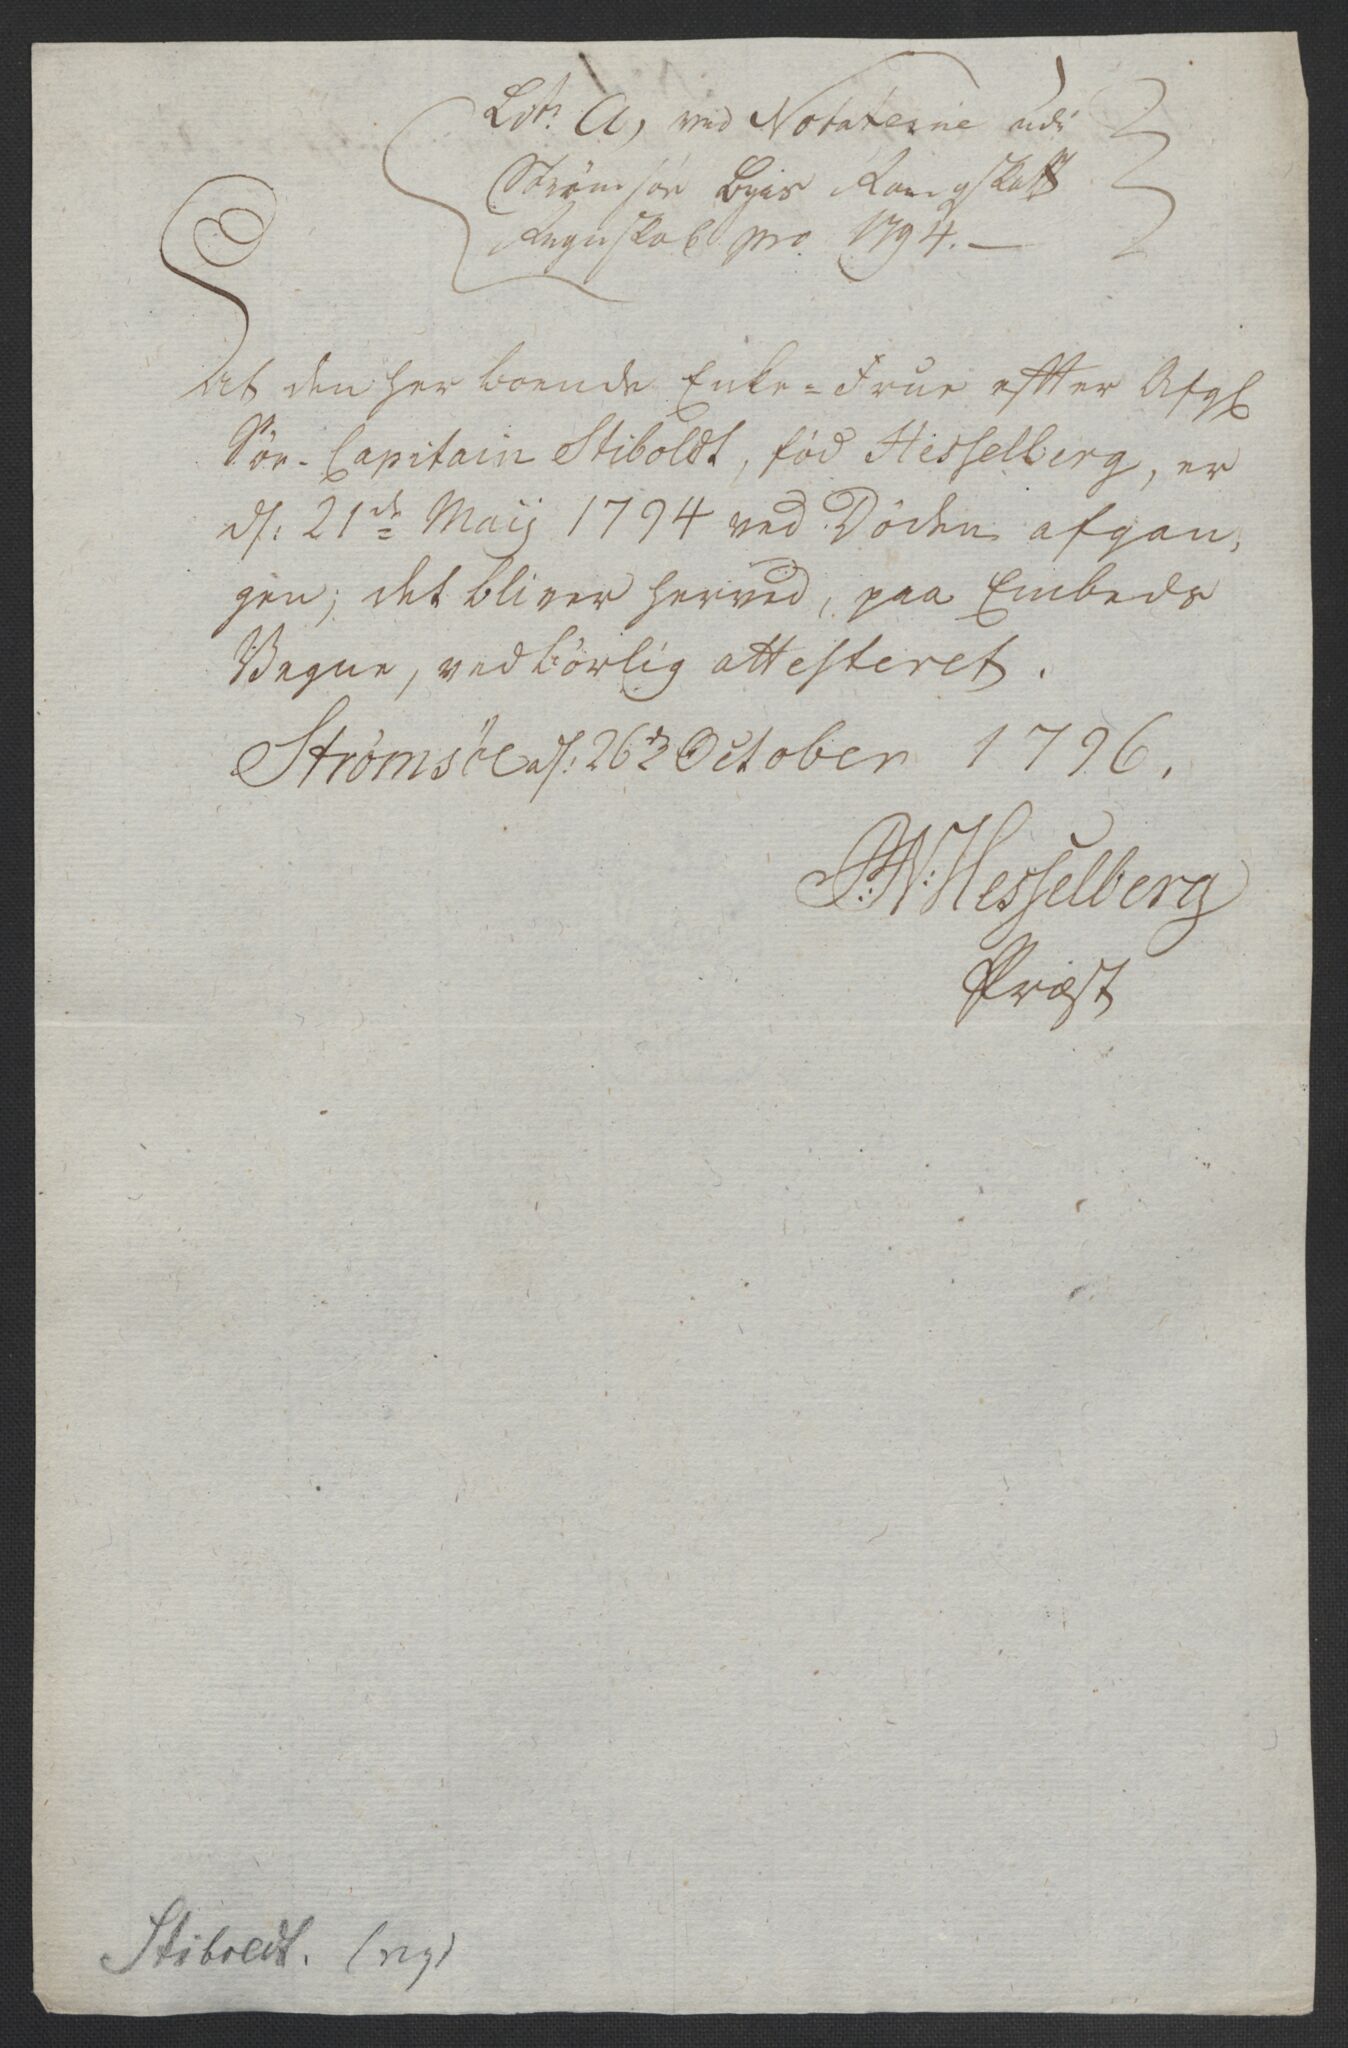 Ltr: A, ved Notaterne udi
Strømsøe Byes Rangskatt
Regnskab pro 1794. —
At den her boende Enke=Frue efter Afgl
Søe-Capitain Stiboldt, fød Hesselberg, er
d: 21de Maij 1794 ved Døden afgan,
gen; det bliver herved, paa Embeds
Vegne, vedbørlig attesteret.
Strømsöe d: 26de October 1796.
P: N: Hesselberg
Præst
Stiboldt. (ng)